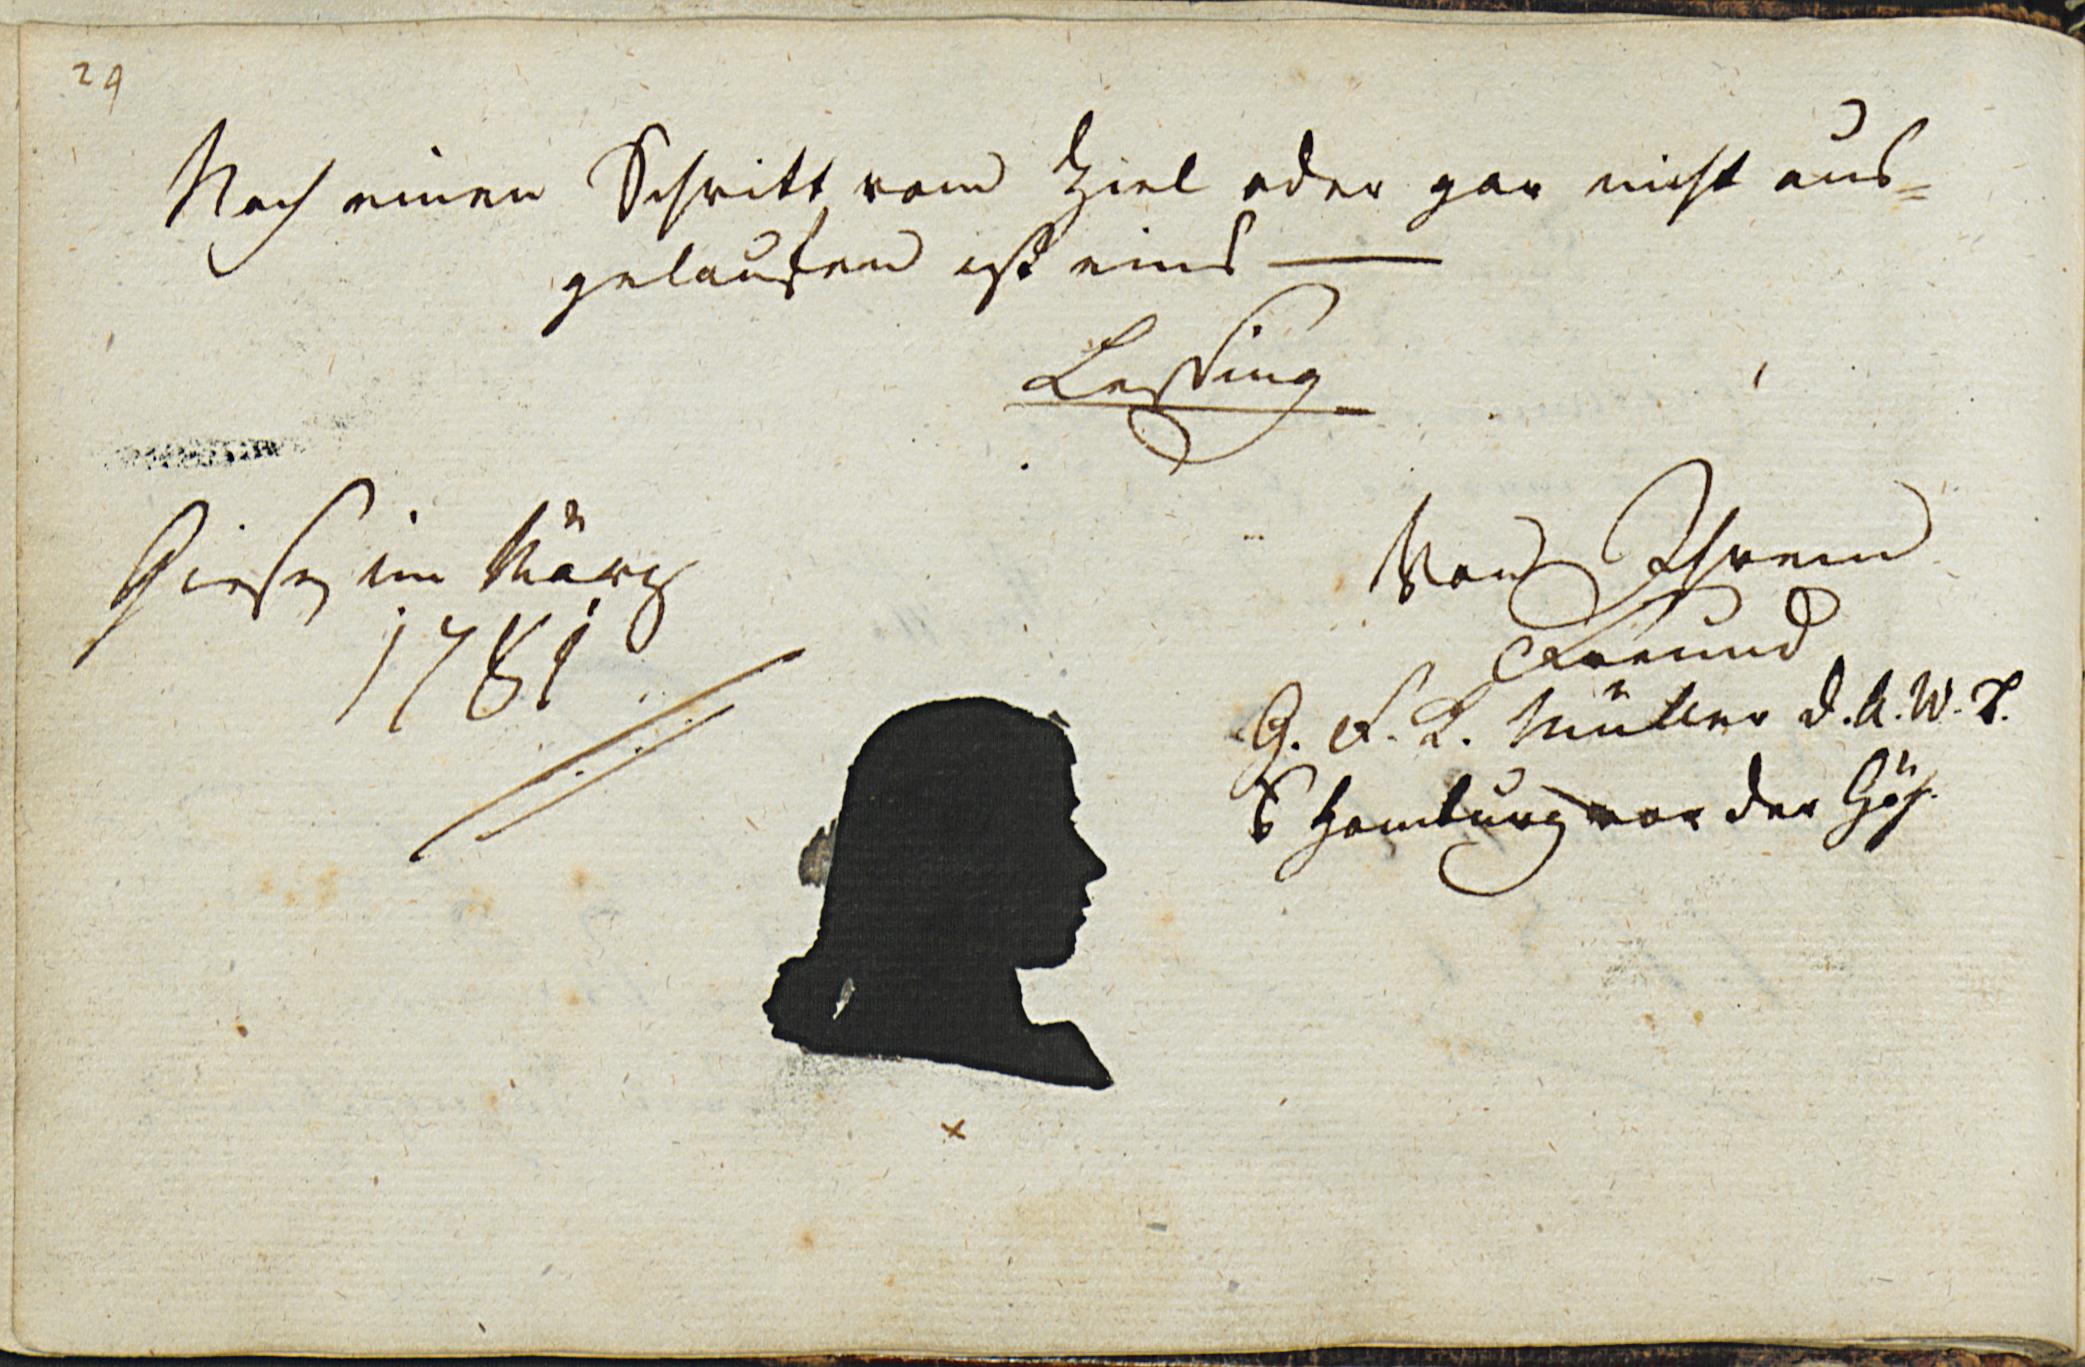 29
Noch einen Schritt vom Ziel oder gar nicht aus=
gelaufen ist eins —
Lessing
Giesen im März
1781
Von Ihrem
Freund
G. F. L. Müller d. A. W.
Homburg vor der Höh.